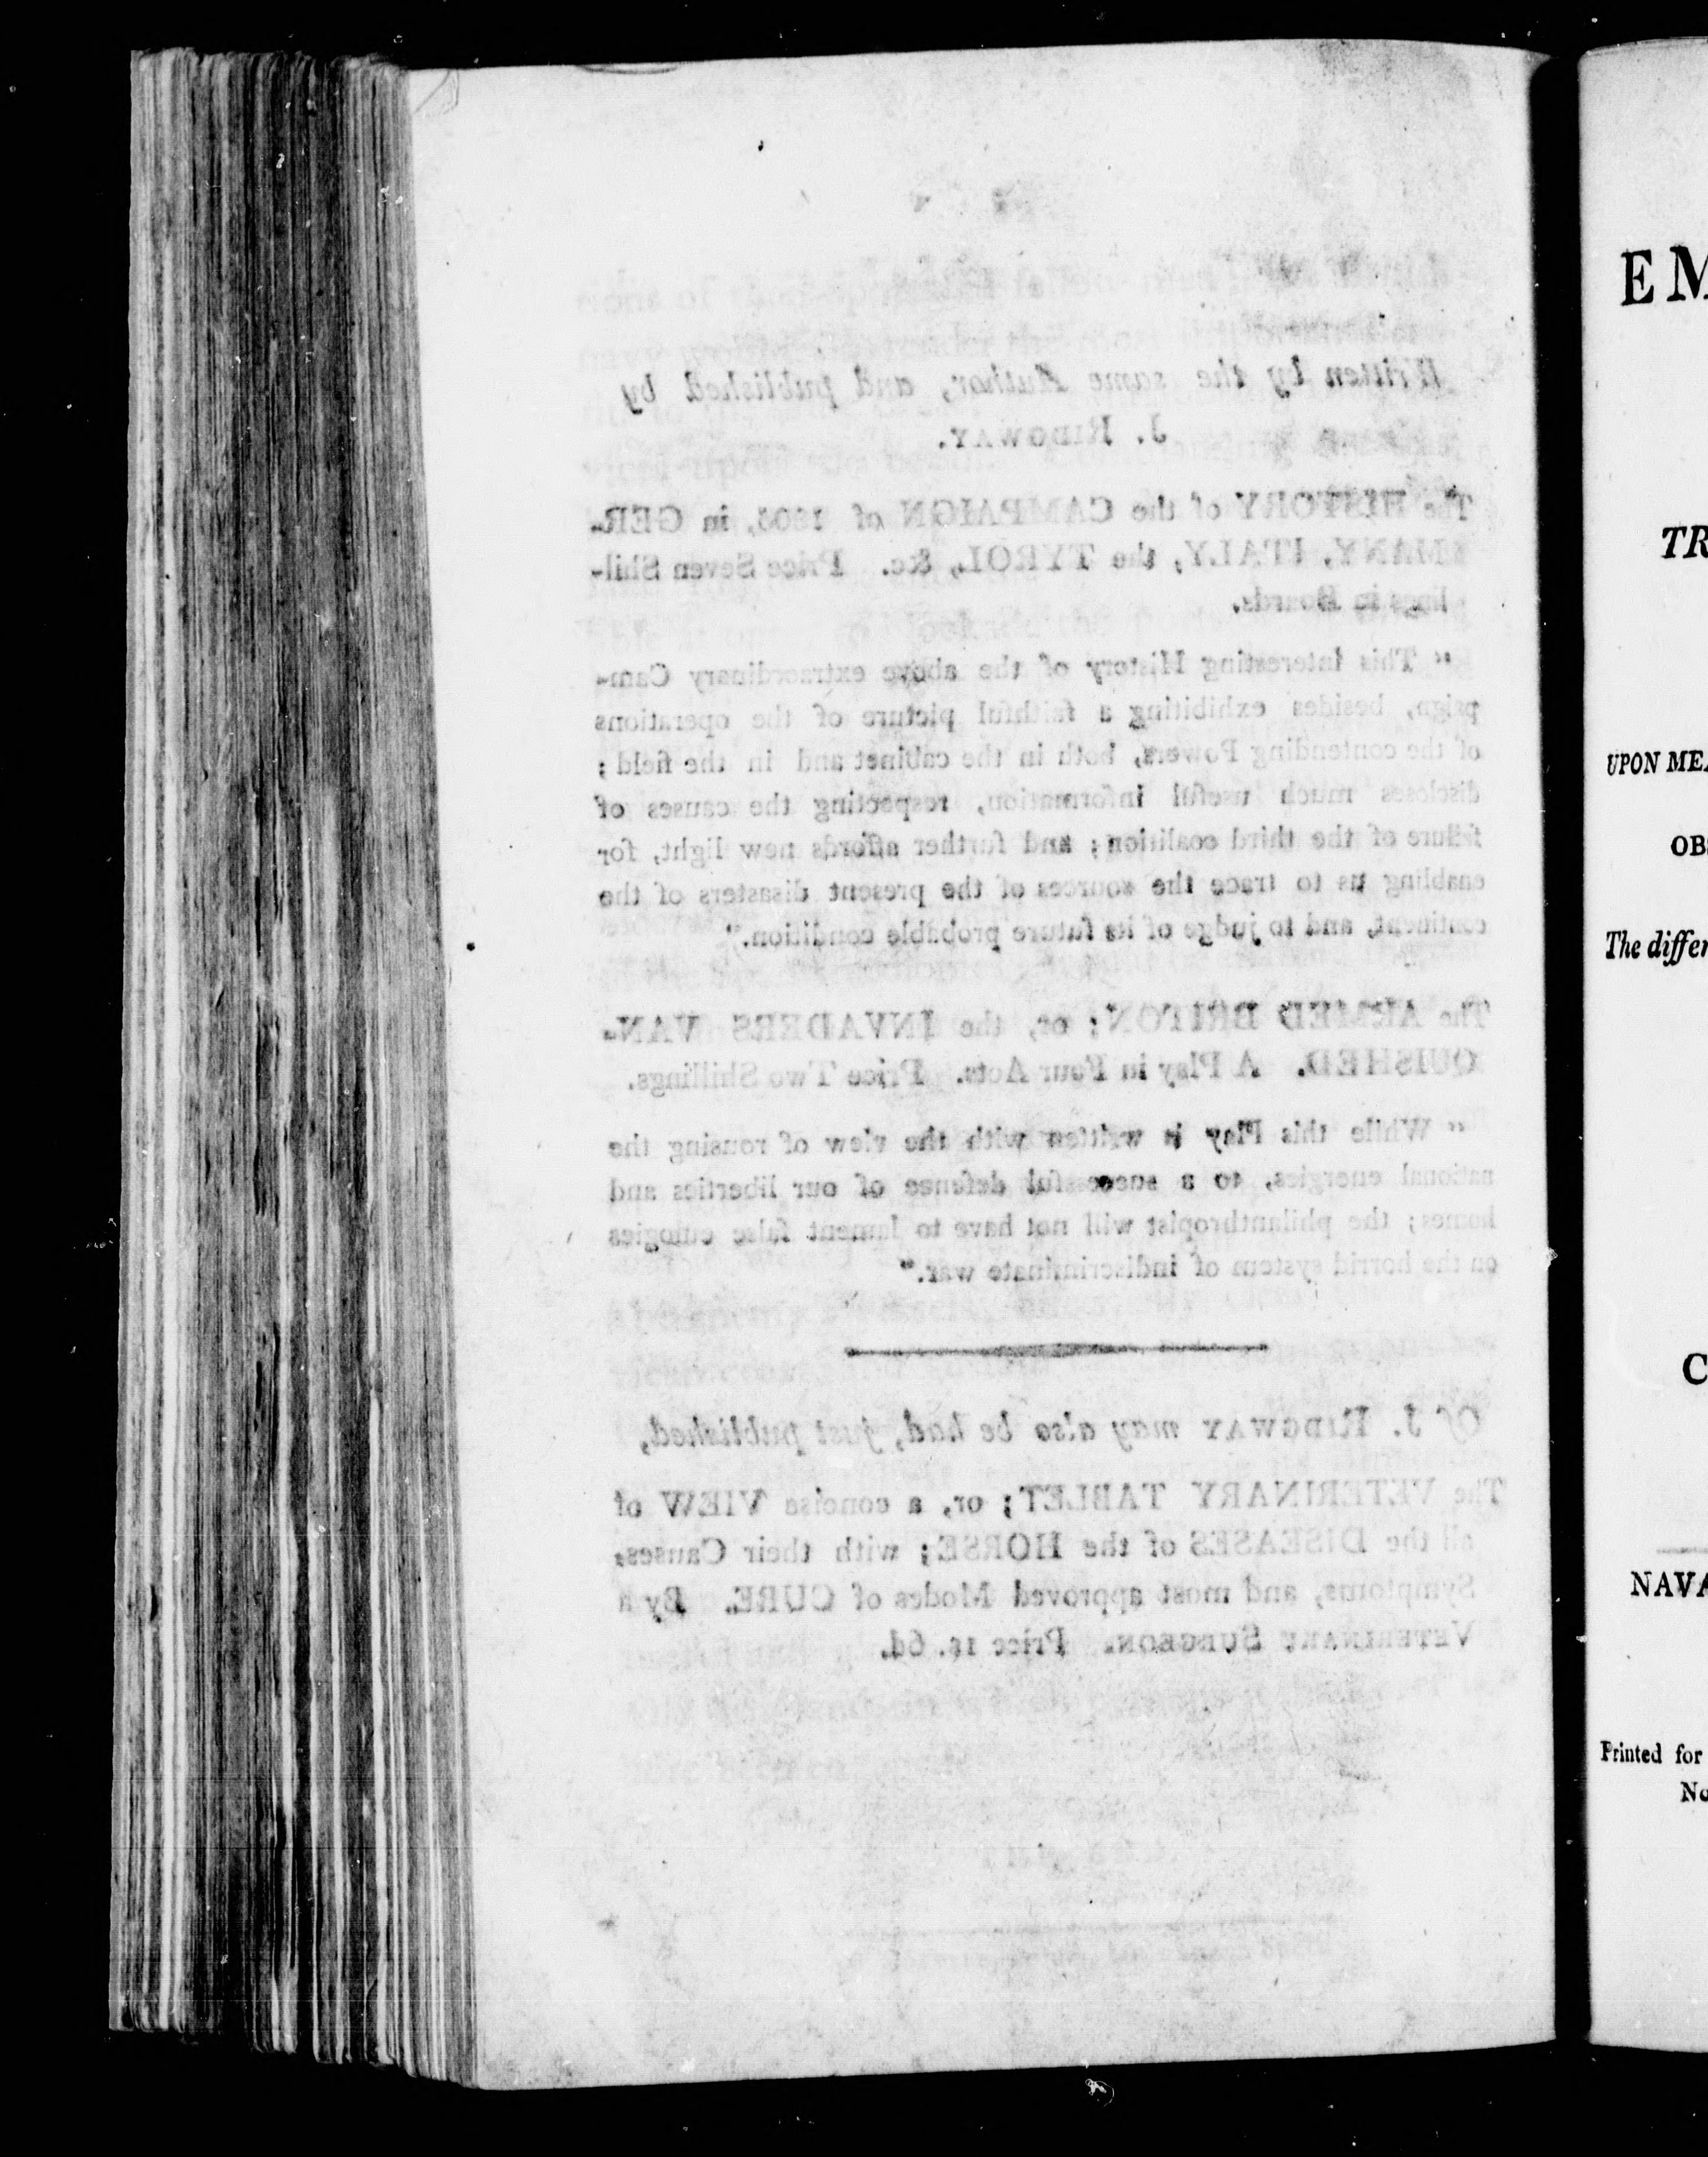 Written by the same Author, and published by
J. RIDGWAY.
The HISTORY of the CAMPAIGN of 1805, in GER-
MANY, ITALY, the TYROL, &c. Price Seven Shil-
lings in Boards.
" This interesting History of the above extraordinary Cam-
paign, besides exhibiting a faithful picture of the operations
of the contending Powers, both in the cabinet and in the field;
discloses much useful information, respecting the causes of
failure of the third coalition; and further affords new light, for
enabling us to trace the sources of the present disasters of the
continent, and to judge of its future probable condition."
The ARMED BRITON; or, the INVADERS VAN-
QUISHED. A Play in Four Acts. Price Two Shillings.
" While this Play is written with the view of rousing the
national energies, to a successful defence of our liberties and
homes; the philanthropist will not have to lament false eulogies
on the horrid system of indiscriminate war."
Of J. RIDGWAY may also be had, just published,
The VETERINARY TABLET; or, a concise VIEW of
all the DISEASES of the HORSE; with their Causes,
Symptoms, and most approved Modes of CURE. By a
VETERINARY SURGEON. Price 1s. 6d.
EM
TR
UPON MEA
OBS
The differ
C
NAVA
Printed for
No